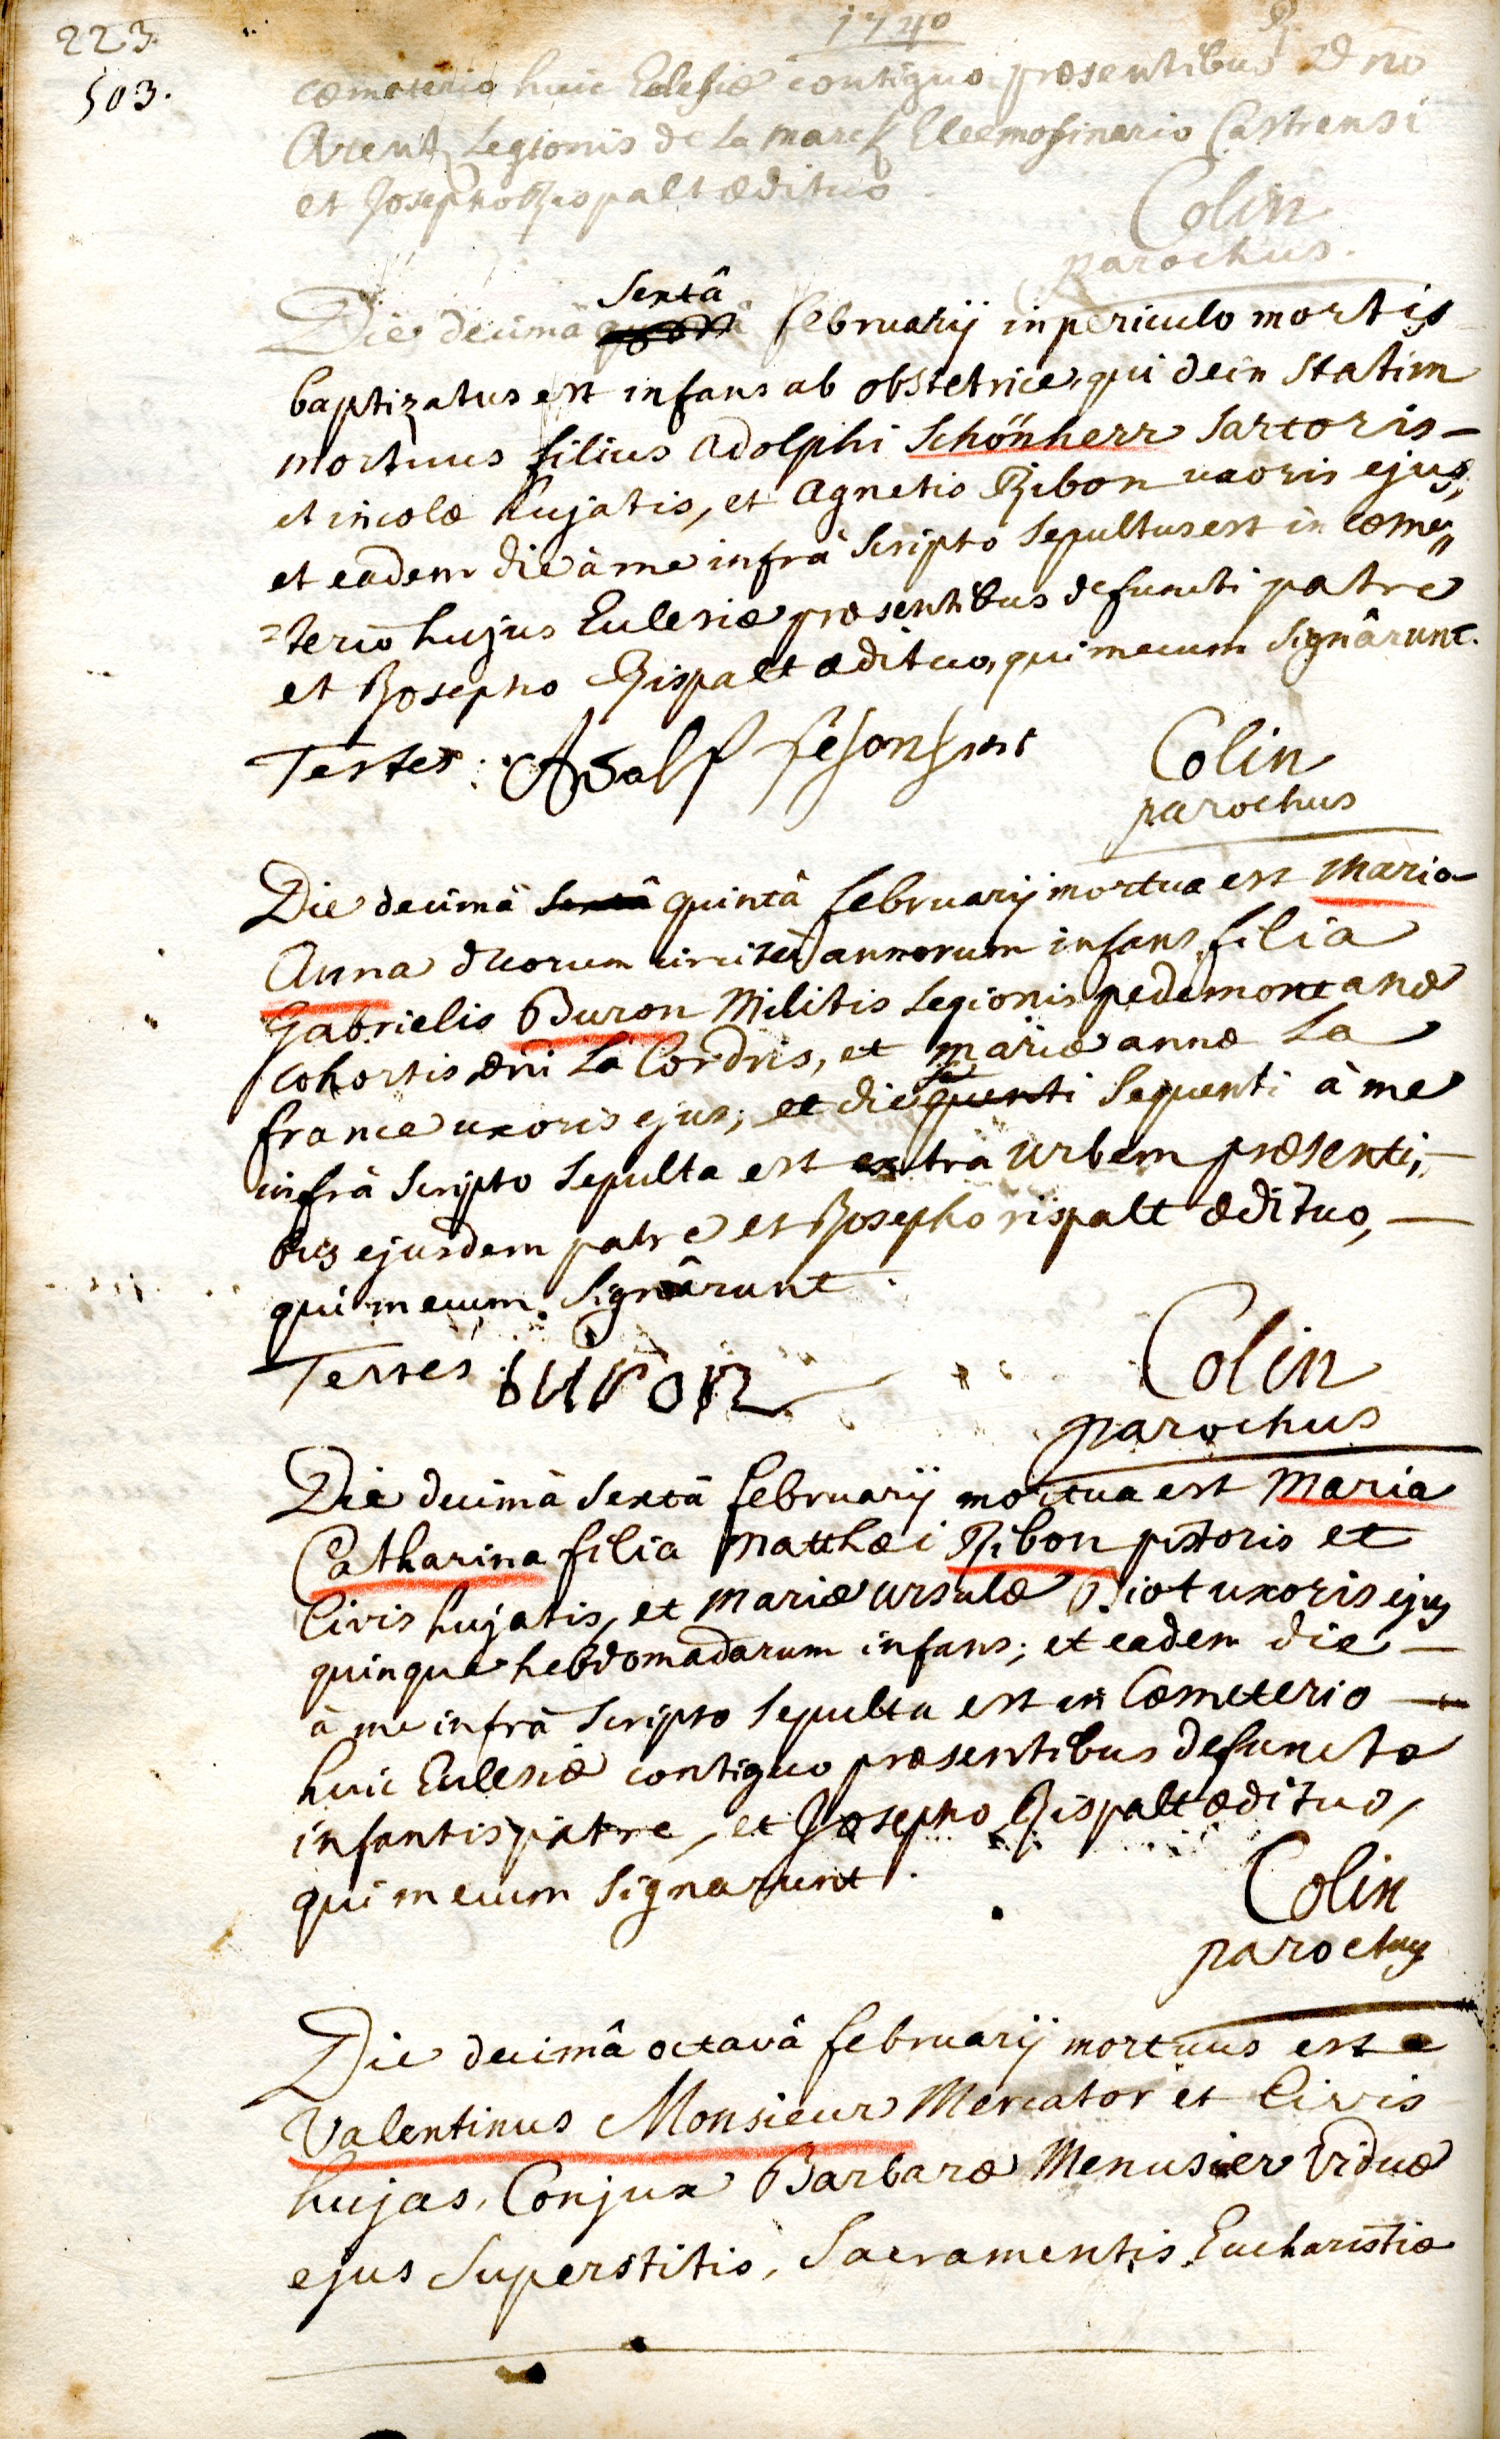 223.
503.
1740
cœmeterio huic Eclesiæ contiguo præsentibus Dno
Arent Legionis de La marck Eleemosinario Castrensi
et Josepho Rispalt ædituo.
Colin
parochus.
Die decimâ sextâ februarij in periculo mortis
baptizatus est infans ab obstetrice, qui dein statim
mortuus filius Adolphi Schönherr sartoris
et incolæ hujatis, et Agnetis Ribon uxoris ejus,
et eadem die à me infrà scripto sepultus est in cœme„
=terio hujus Eclesiæ præsentibus defuncti patre
et Josepho Rispalt ædituo, qui mecum signârunt.
Testes: Adolf
Colin
parochus
Die decimâ sextâ quintâ februarij mortua est Maria
Anna duorum circiter annorum infans filia
Gabrielis Buron Militis Legionis pedemontanæ
Cohortis Dni La Cordris, et mariæ annæ La
france uxoris ejus; et die sequenti à me
infrà scripto sepulta est extrà Urbem præsenti,
bus ejusdem patre et Josepho rispalt ædituo,
qui mecum signârunt.
Testes: buron
Colin
parochus
Die decimâ sextâ februarij mortua est Maria
Catharina filia Matthæi Ribon pistoris et
Civis hujatis, et Mariæ Ursulæ Piot uxoris ejus
quinque hebdomadarum infans; et eadem die
à me infrà scripto sepulta est in Cœmeterio
huic Eclesiæ contiguo præsentibus defunctæ
infantis patre, et Josepho Rispalt ædituo,
qui mecum signarunt.
Colin
parochus
Die decimâ octavâ februarij mortuus est
Valentinus Monsieur Mercator et Civis
hujas, Conjux Barbaræ Menusier Viduæ
ejus superstitis, Sacramentis Eucharistiæ